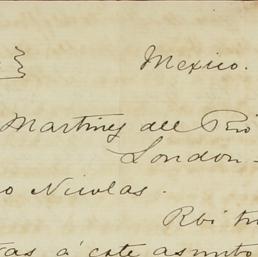 Mexico.
Martinez del Rio
London -
o Nicolas.
á este asunto